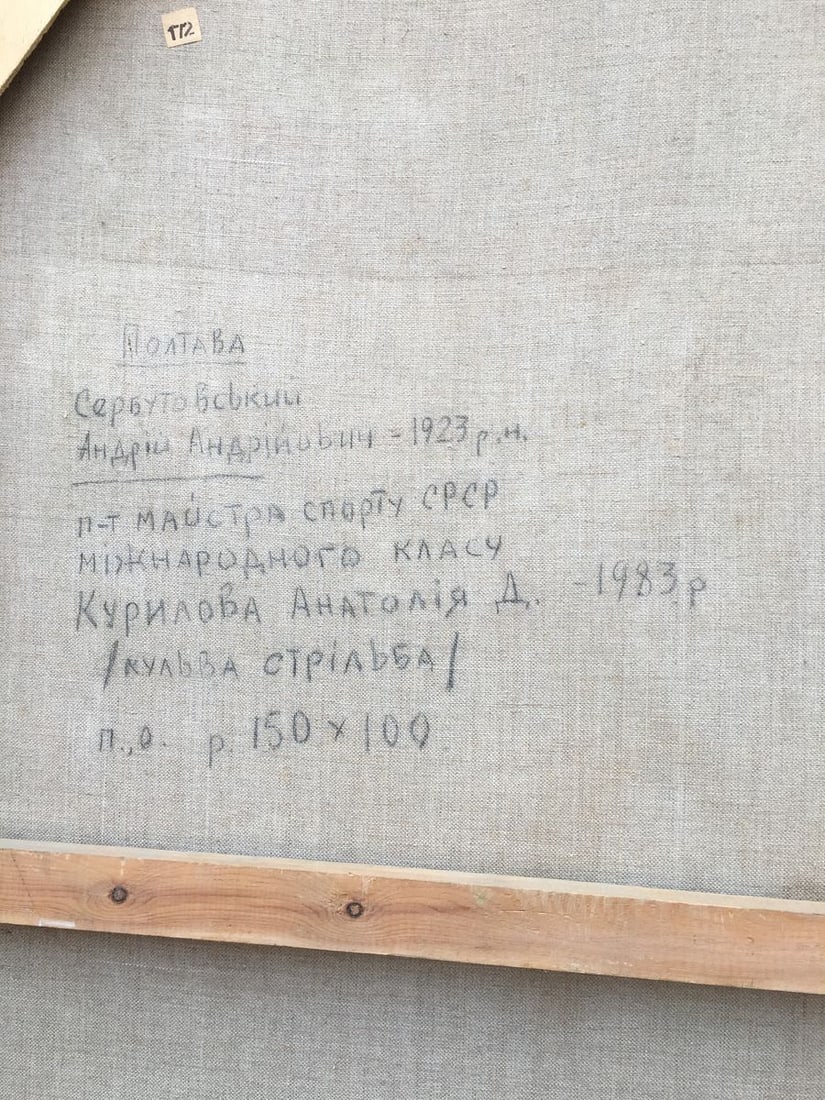 172
Полтава
Сербутовський
Андрій Андрійович - 1923 р.н.
п-т майстра спорту СРСР
міжнародного класу
Курилова Анатолія Д. - 1983 р
/кульва стрільба/
п.,о. р. 150 х 100